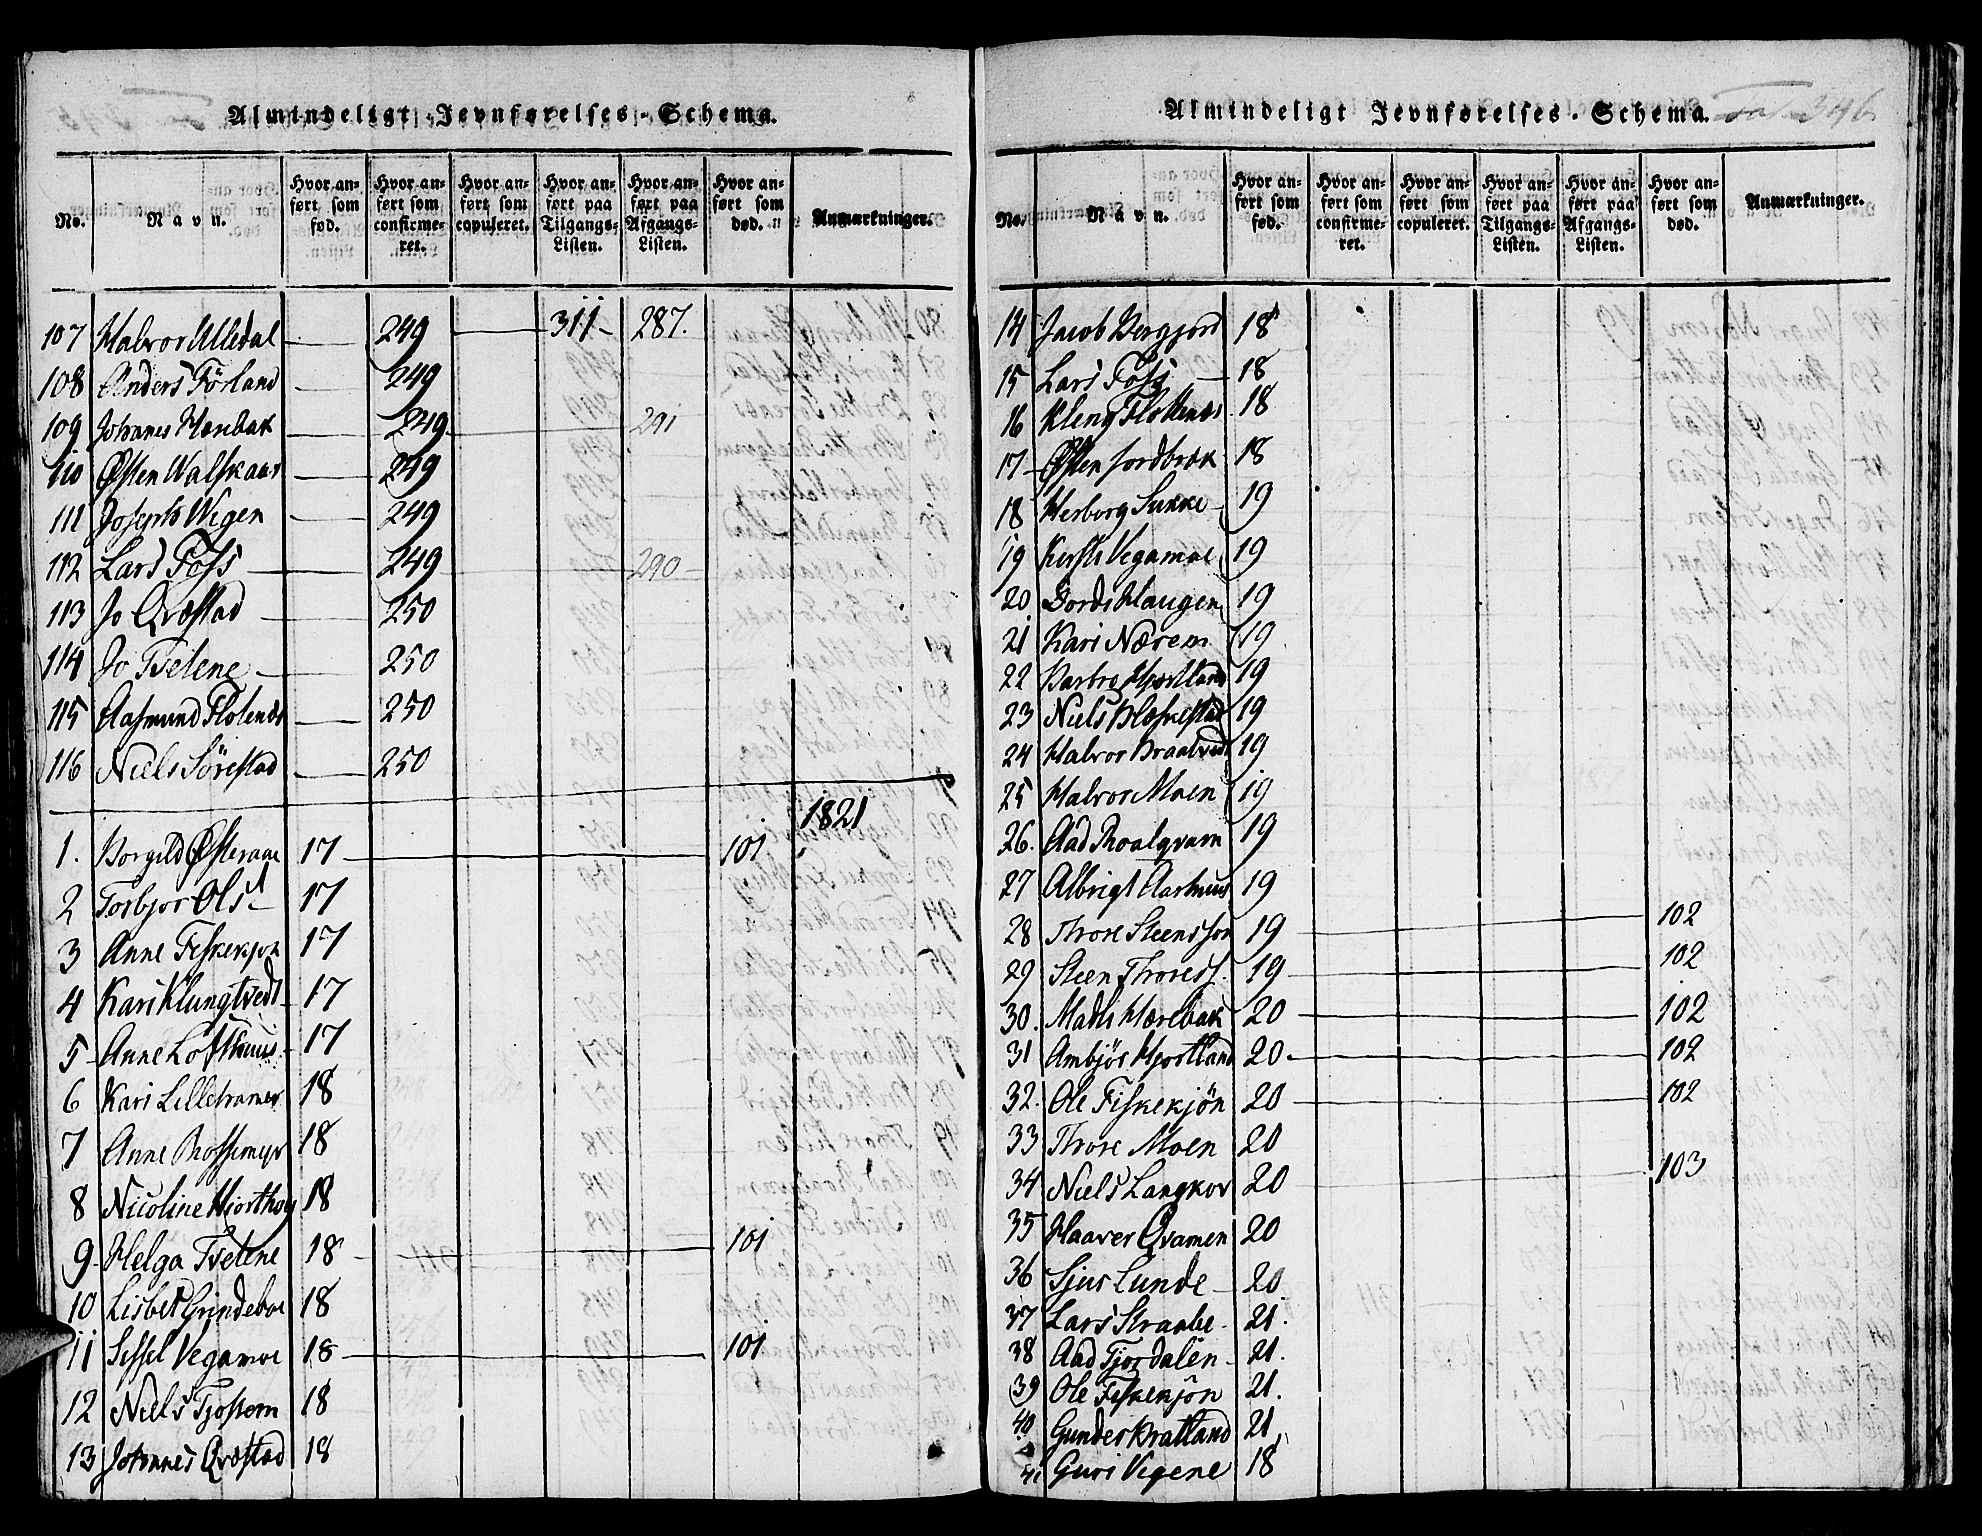 Almindeligt Jevnførelses-Schema.
No. Navn. Hvor anført som fød. Hvor anført som confirmeret. Hvor anført som copuleret. Hvor anført paa Tilgangs-Listen. Hvor anført paa Afgangs-Listen. Hvor anført som død. Anmærkninger.
107 Halvor Ulledal 249 311 287.
108 Anders Førland 249
109 Johannes Hærebak 249 291
110 Østen Walskaar 249
111 Joseph Wigen 249
112 Lars Foss 249 290
113 Jo Qvæstad 250
114 Jo Tvetene 250
115 Aasmund Flotenæs 250
116 Niels Sørestad 250
1821
1. Borgild Østeraae 17 101
2 Torbjor Ols 17
3 Anne Fiskekjon 17
4 Kari Klungtvedt 17
5 Anne Lofthuus 17
6 Kari Lillehamer 18
7 Anne Mossemyr 18
8 Nicoline Hiorthoy 18
9 Helga Tvetene 18 101
10 Lisbet Grindeboe 18
11 Sissel Vegamoe 18 101
12 Niels Tjostem 18
13 Johannes Qvæstad 18
Almindeligt Jevnførelses-Schema. 346
No. Navn. Hvor anført som fød. Hvor anført som confirmeret. Hvor anført som copuleret. Hvor anført paa Tilgangs-Listen. Hvor anført paa Afgangs-Listen. Hvor anført som død. Anmærkninger.
14 Jacob Bergjord 18
15 Lars Foss 18
16 Kleng Flottenæs 18
17 Østen Jordbræk 18
18 Herborg Sukke 19
19 Kirsti Vegamoe 19
20 Gordi Haugen 19
21 Kari Nærem 19
22 Barbro Hjortland 19
23 Niels Bleskestad 19
24 Halvor Braatvedt 19
25 Halvor Moen 19
26. Aad Roalqvam 19
27 Albrigt Aarhuus 19
28 Thore Steensson 19 102
29 Steen Thoreds. 19 102
30. Mads Hærebak 20 102
31 Ambjør Hjortland 20 102
32. Ole Fiskekjön 20 102
33 Thore Moen 20
34 Niels Langkor 20 103
35 Haaver Qvamen 20
36 Sjur Lunde 20
37 Lars Straabe 21.
38 Aad Fjordalen 21.
39 Ole Fiskekjön 21.
40 Gunder Bratland 21
41 Guri Vegene 18